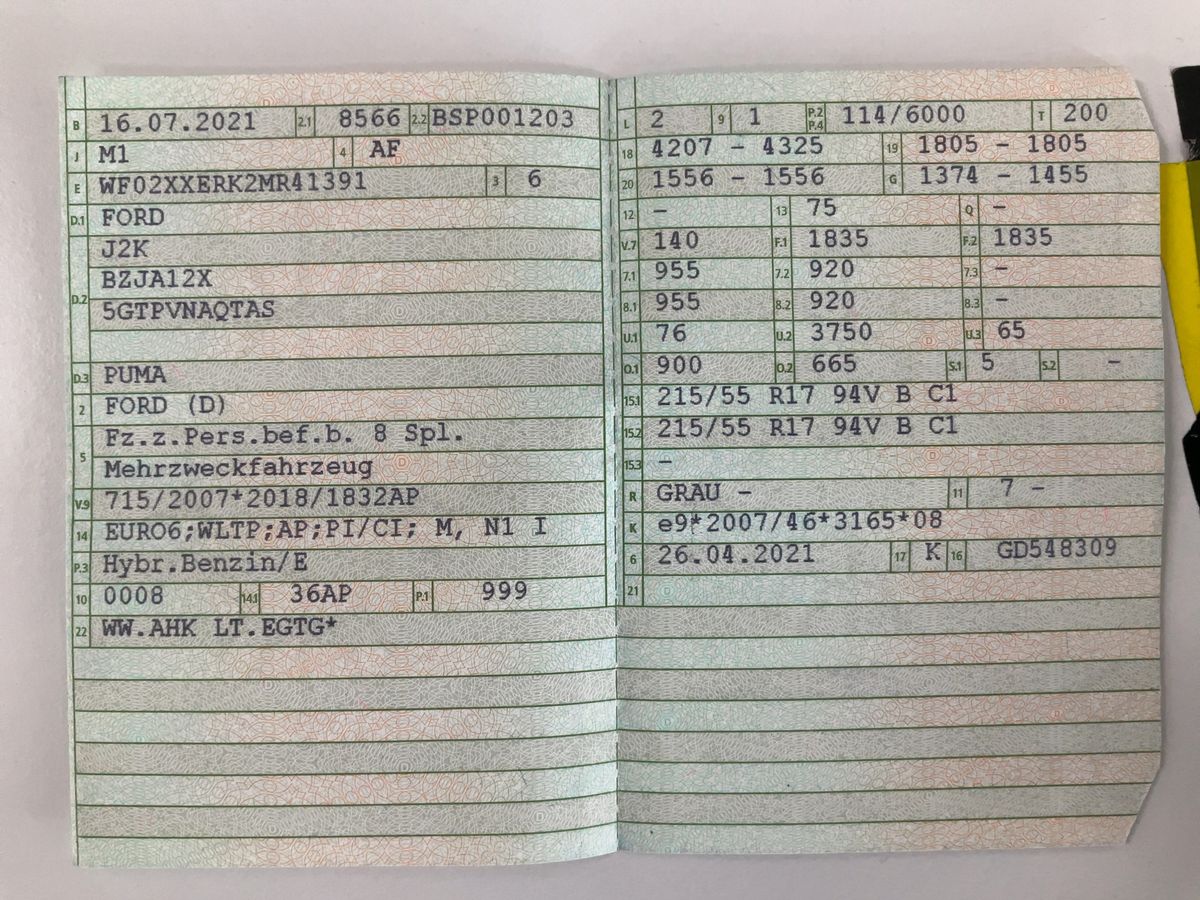 B 16.07.2021 2.1 8566 2.2 BSP001203
J M1 4 AF
E WF02XXERK2MR41391 3 6
D.1 FORD
D.2 J2K
BZJA12X
5GTPVNAQTAS
D.3 PUMA
2 FORD (D)
5 Fz.z.Pers.bef.b. 8 Spl.
Mehrzweckfahrzeug
V.9 715/2007*2018/1832AP
14 EURO6;WLTP;AP;PI/CI; M, N1 I
P.3 Hybr.Benzin/E
10 0008 14.1 36AP P.1 999
22 WW.AHK LT.EGTG*
L 2 9 1 P.2 P.4 114/6000 T 200
18 4207 - 4325 19 1805 - 1805
20 1556 - 1556 G 1374 - 1455
12 - 13 75 Q -
V.7 140 F.1 1835 F.2 1835
7.1 955 7.2 920 7.3 -
8.1 955 8.2 920 8.3 -
U.1 76 U.2 3750 U.3 65
O.1 900 O.2 665 S.1 5 S.2 -
15.1 215/55 R17 94V B C1
15.2 215/55 R17 94V B C1
15.3 -
R GRAU - 11 7 -
K e9*2007/46*3165*08
6 26.04.2021 17 K 16 GD548309
21